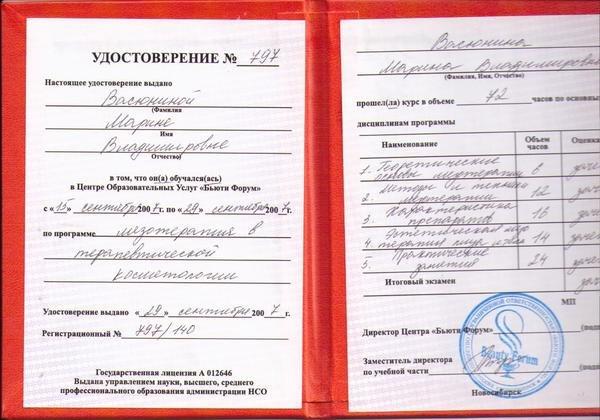 УДОСТОВЕРЕНИЕ № 797
Настоящее удостоверение выдано
Васюниной
(Фамилия)
Марине
Имя
Владимировне
Отчество)
в том, что он(а) обучался(ась)
в Центре Образовательных Услуг «Бьюти Форум»
с «15» сентября 2007 г. по «29» сентября 2007г.
по программе мезотерапия в
терапевтической
косметологии
Удостоверение выдано «29» сентября 2007 г.
Регистрационный № 797/140
Государственная лицензия А 012646
Выдана управлением науки, высшего, среднего
профессионального образования администрации НСО
Васюнина
Марина Владимировна
(Фамилия, Имя, Отчество)
прошел(ла) курс в объеме 72 часов по основным
дисциплинам программы
Наименование Объем часов Оценка
1. Теоретические основы мезотерапии 6 зачет
2. Методы и техники мезотерапии 12 зачет
3. Характеристика препаратов 16 зачет
4. Эстетическая мезотерапия лица и тела 14 зачет
5. Практические занятия 24 зачет
Итоговый экзамен зачет
МП
Директор Центра «Бьюти Форум»
Заместитель директора
по учебной части
Beauty Forum
Новосибирск